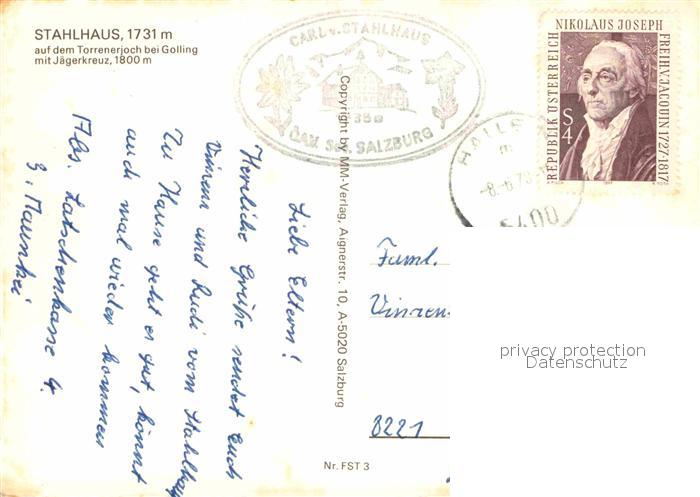 STAHLHAUS, 1731 m
auf dem Torrenerjoch bei Golling
mit Jägerkreuz, 1800 m
CARL v. STAHLHAUS
ÖAV. SALZBURG
NIKOLAUS JOSEPH
FREIH. V. JACQUIN 1727-1817
REPUBLIK ÖSTERREICH
S 4
HALLE
-8.-6.78
5400
Copyright by MM-Verlag, Aignerstr. 10, A-5020 Salzburg
Liebe Eltern!
Herzliche Grüße sendet Euch
und Rudi vom Stahlhaus
Zu Hause geht es gut, könnt
auch mal wieder kommen
Abs.
Faml.
8221
Nr. FST 3
privacy protection
Datenschutz